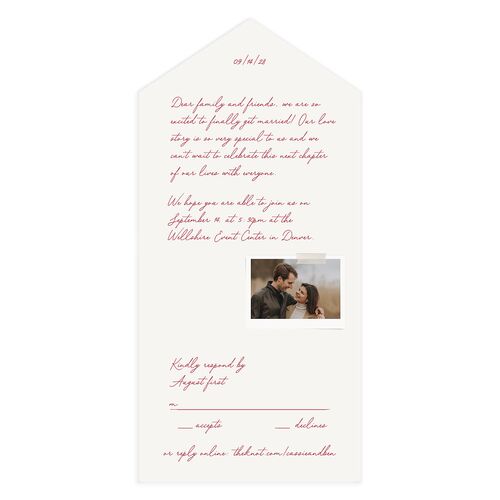 09/14/28
Dear family and friends, we are so
excited to finally get married! Our love
story is so very special to us and we
can't wait to celebrate this next chapter
of our lives with everyone.
We hope you are able to join us on
September 14, at 5:30pm at the
Wellshire Event Center in Denver.
Kindly respond by
August first
m
accepts declines
or reply online: theknot.com/cassieandben